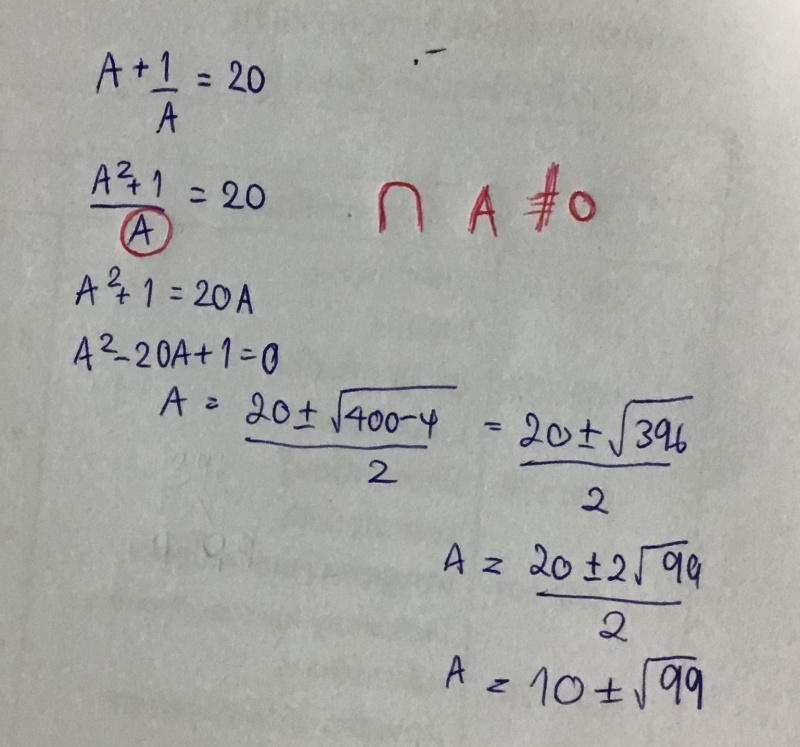 A + 1/A = 20
A²+1/A = 20 ∩ A ≠ 0
A²+1 = 20A
A²-20A+1=0
A = 20±√400-4/2 = 20±√396/2
A = 20±2√99/2
A = 10±√99